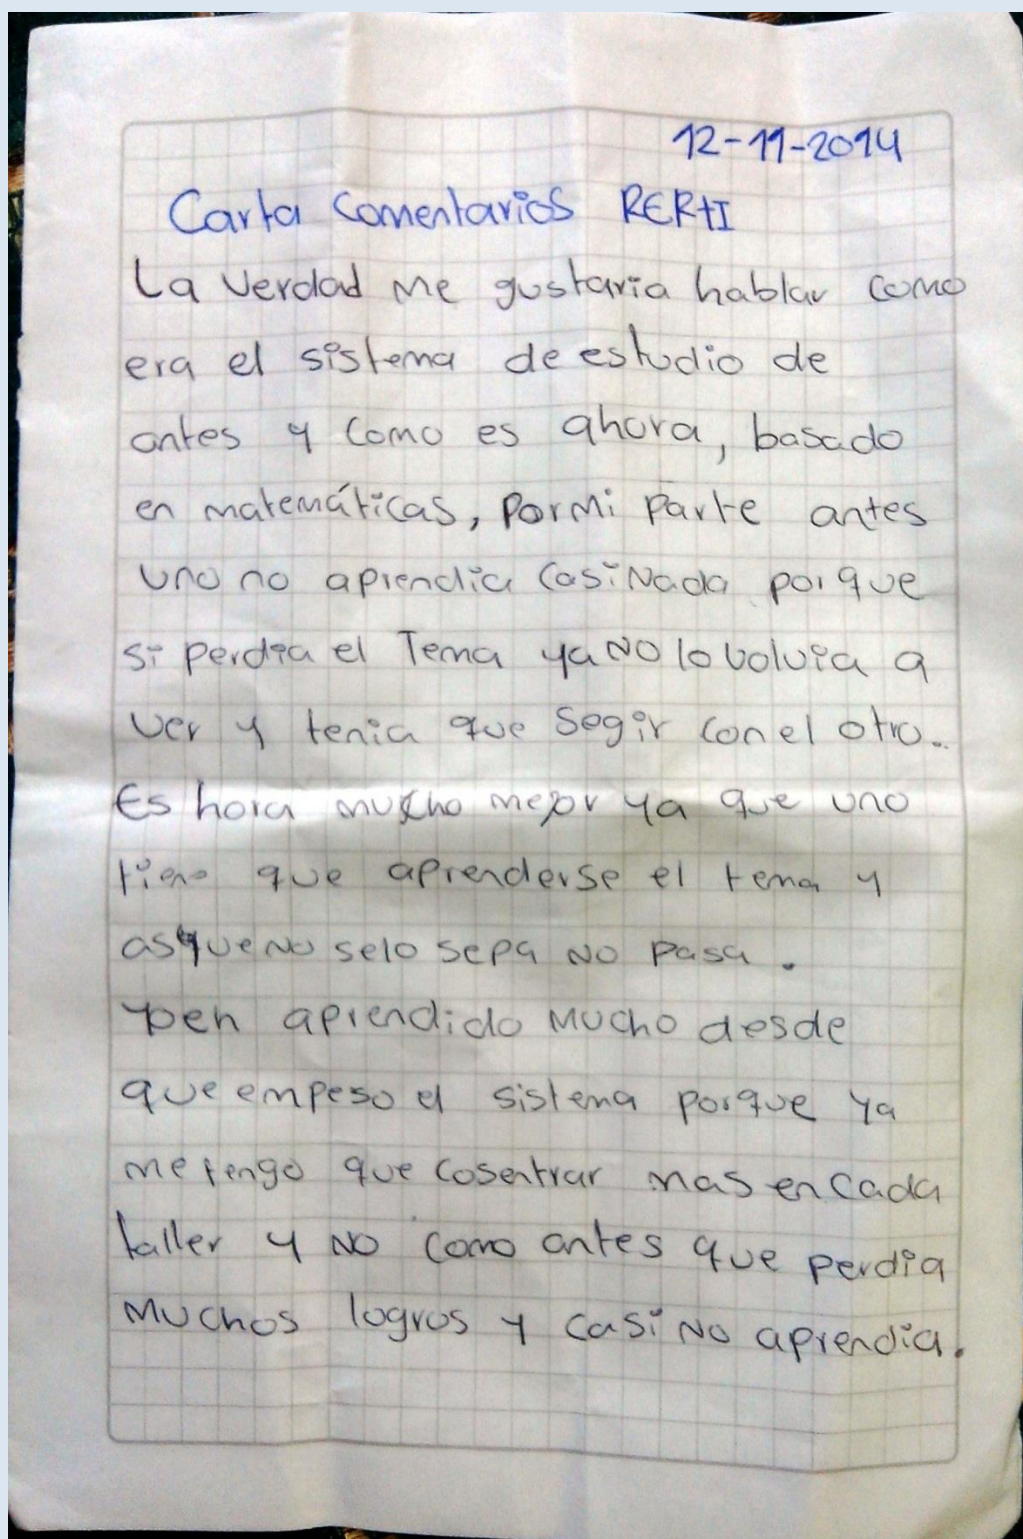 12-11-2014
Carta Comentarios RERtI
La Verdad me gustaria hablar como
era el sistema de estudio de
antes y Como es ahora, basado
en matemáticas, Por Mi Parte antes
uno no aprendia Casi Nada porque
si perdia el Tema ya NO lo volvia a
ver y tenia que Segir con el otro..
Es hora mucho mejor ya que uno
tiene que aprenderse el tema y
que NO selo sepa NO pasa.
aprendido Mucho desde
que empeso el sistema porque ya
me tengo que Cosentrar mas en Cada
taller y NO como antes que perdia
Muchos logros y Casi No aprendia.